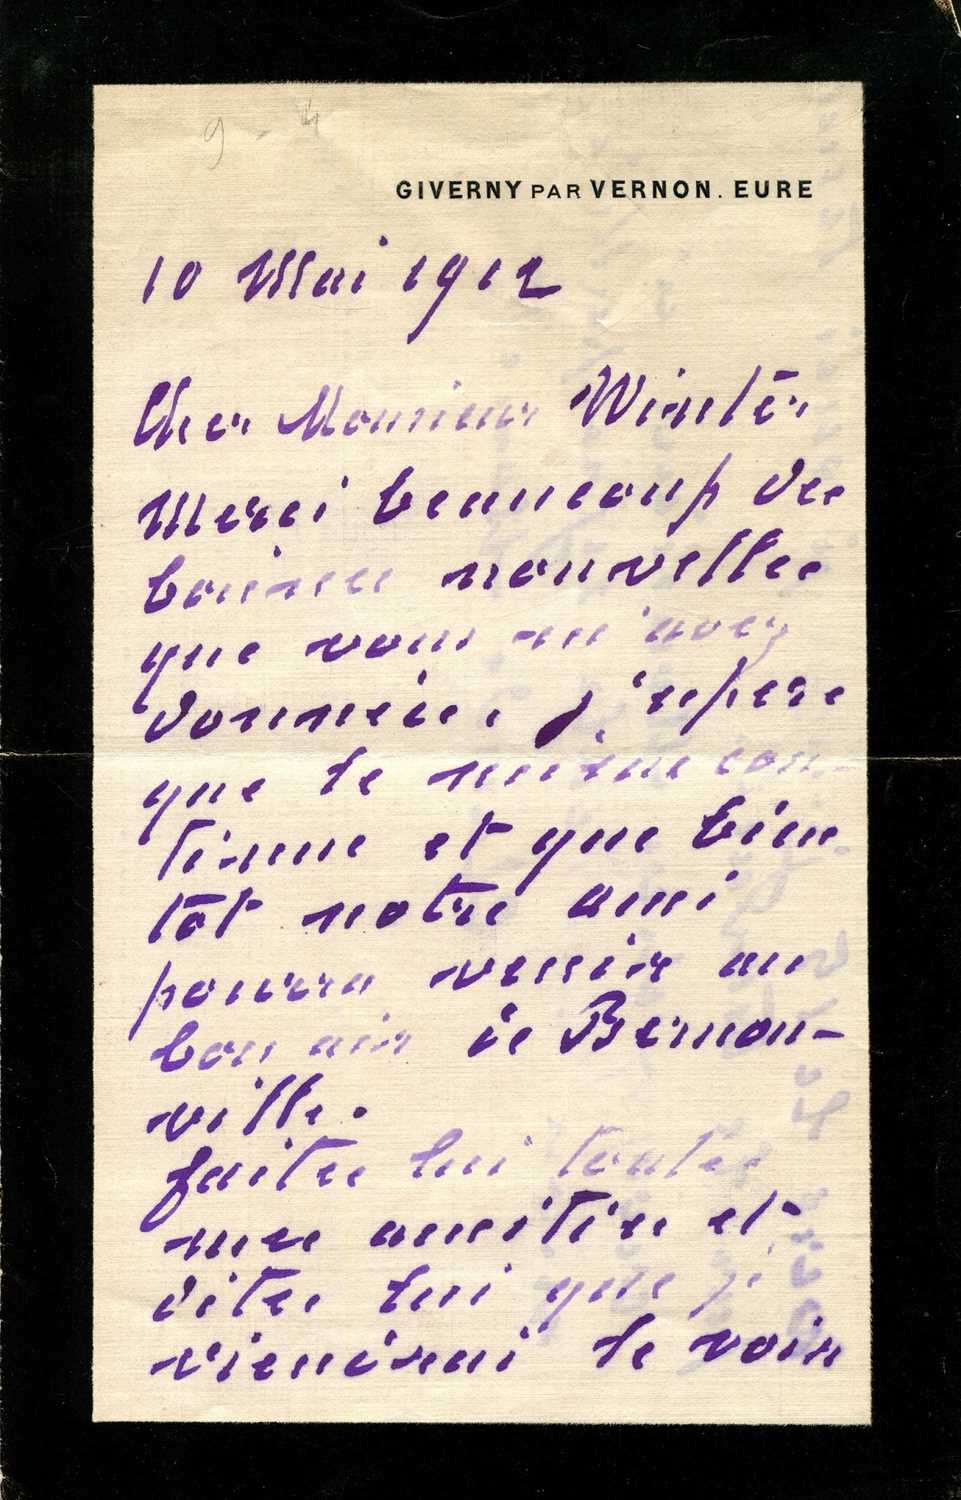 9 - 4
GIVERNY PAR VERNON. EURE
10 Mai 1912
Cher Monsieur Winter
Merci beaucoup des
bonnes nouvelles
que vous m'avez
données, j'espere
que le mème con-
tinue et que bien
tôt notre ami
pourra venir au
bon air de Bernon-
ville.
faites lui toutes
mes amitiés et
dites lui que je
viendrai le voir